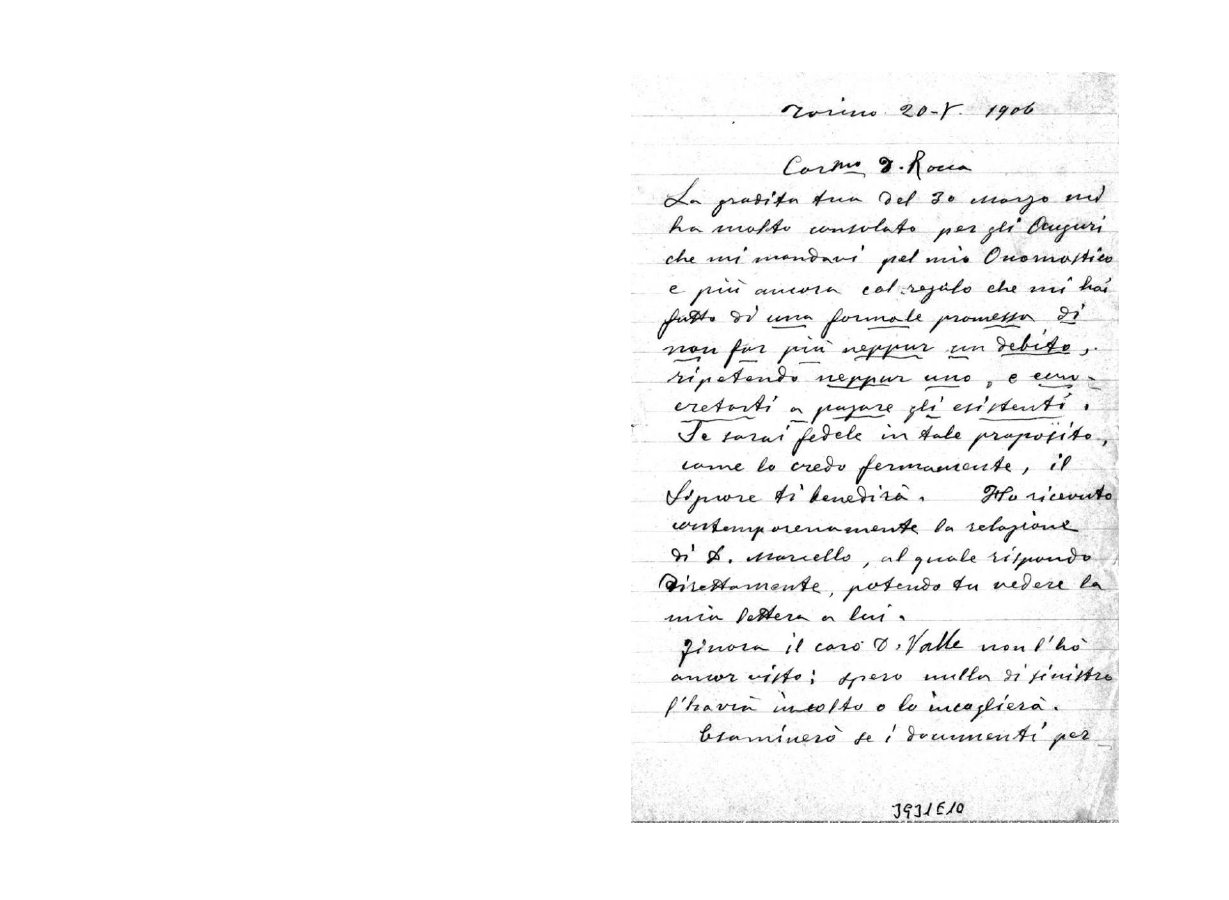 Torino 20-V. 1906
Carmo D. Rocca
La gradita tua del 30 Marzo mi
ha molto consolato per gli Auguri
che mi mandavi pel mio Onomastico
e più ancora col regalo che mi hai
fatto di una formale promessa di
non far più neppur un debito,
ripetendo neppur uno, e con-
cretarti a pagare gli esistenti.
Se sarai fedele in tale proposito,
come lo credo fermamente, il
Signore ti benedirà. Ho ricevuto
contemporeneamente la relazione
di D. Marcello, al quale rispondo
direttamente, potendo tu vedere la
mia lettera a lui.
Finora il caro D. Valle non l'hò
ancor visto; spero nulla di sinistro
l'havrà incolto o lo incoglierà.
Esaminerò se i documenti per
3931E10